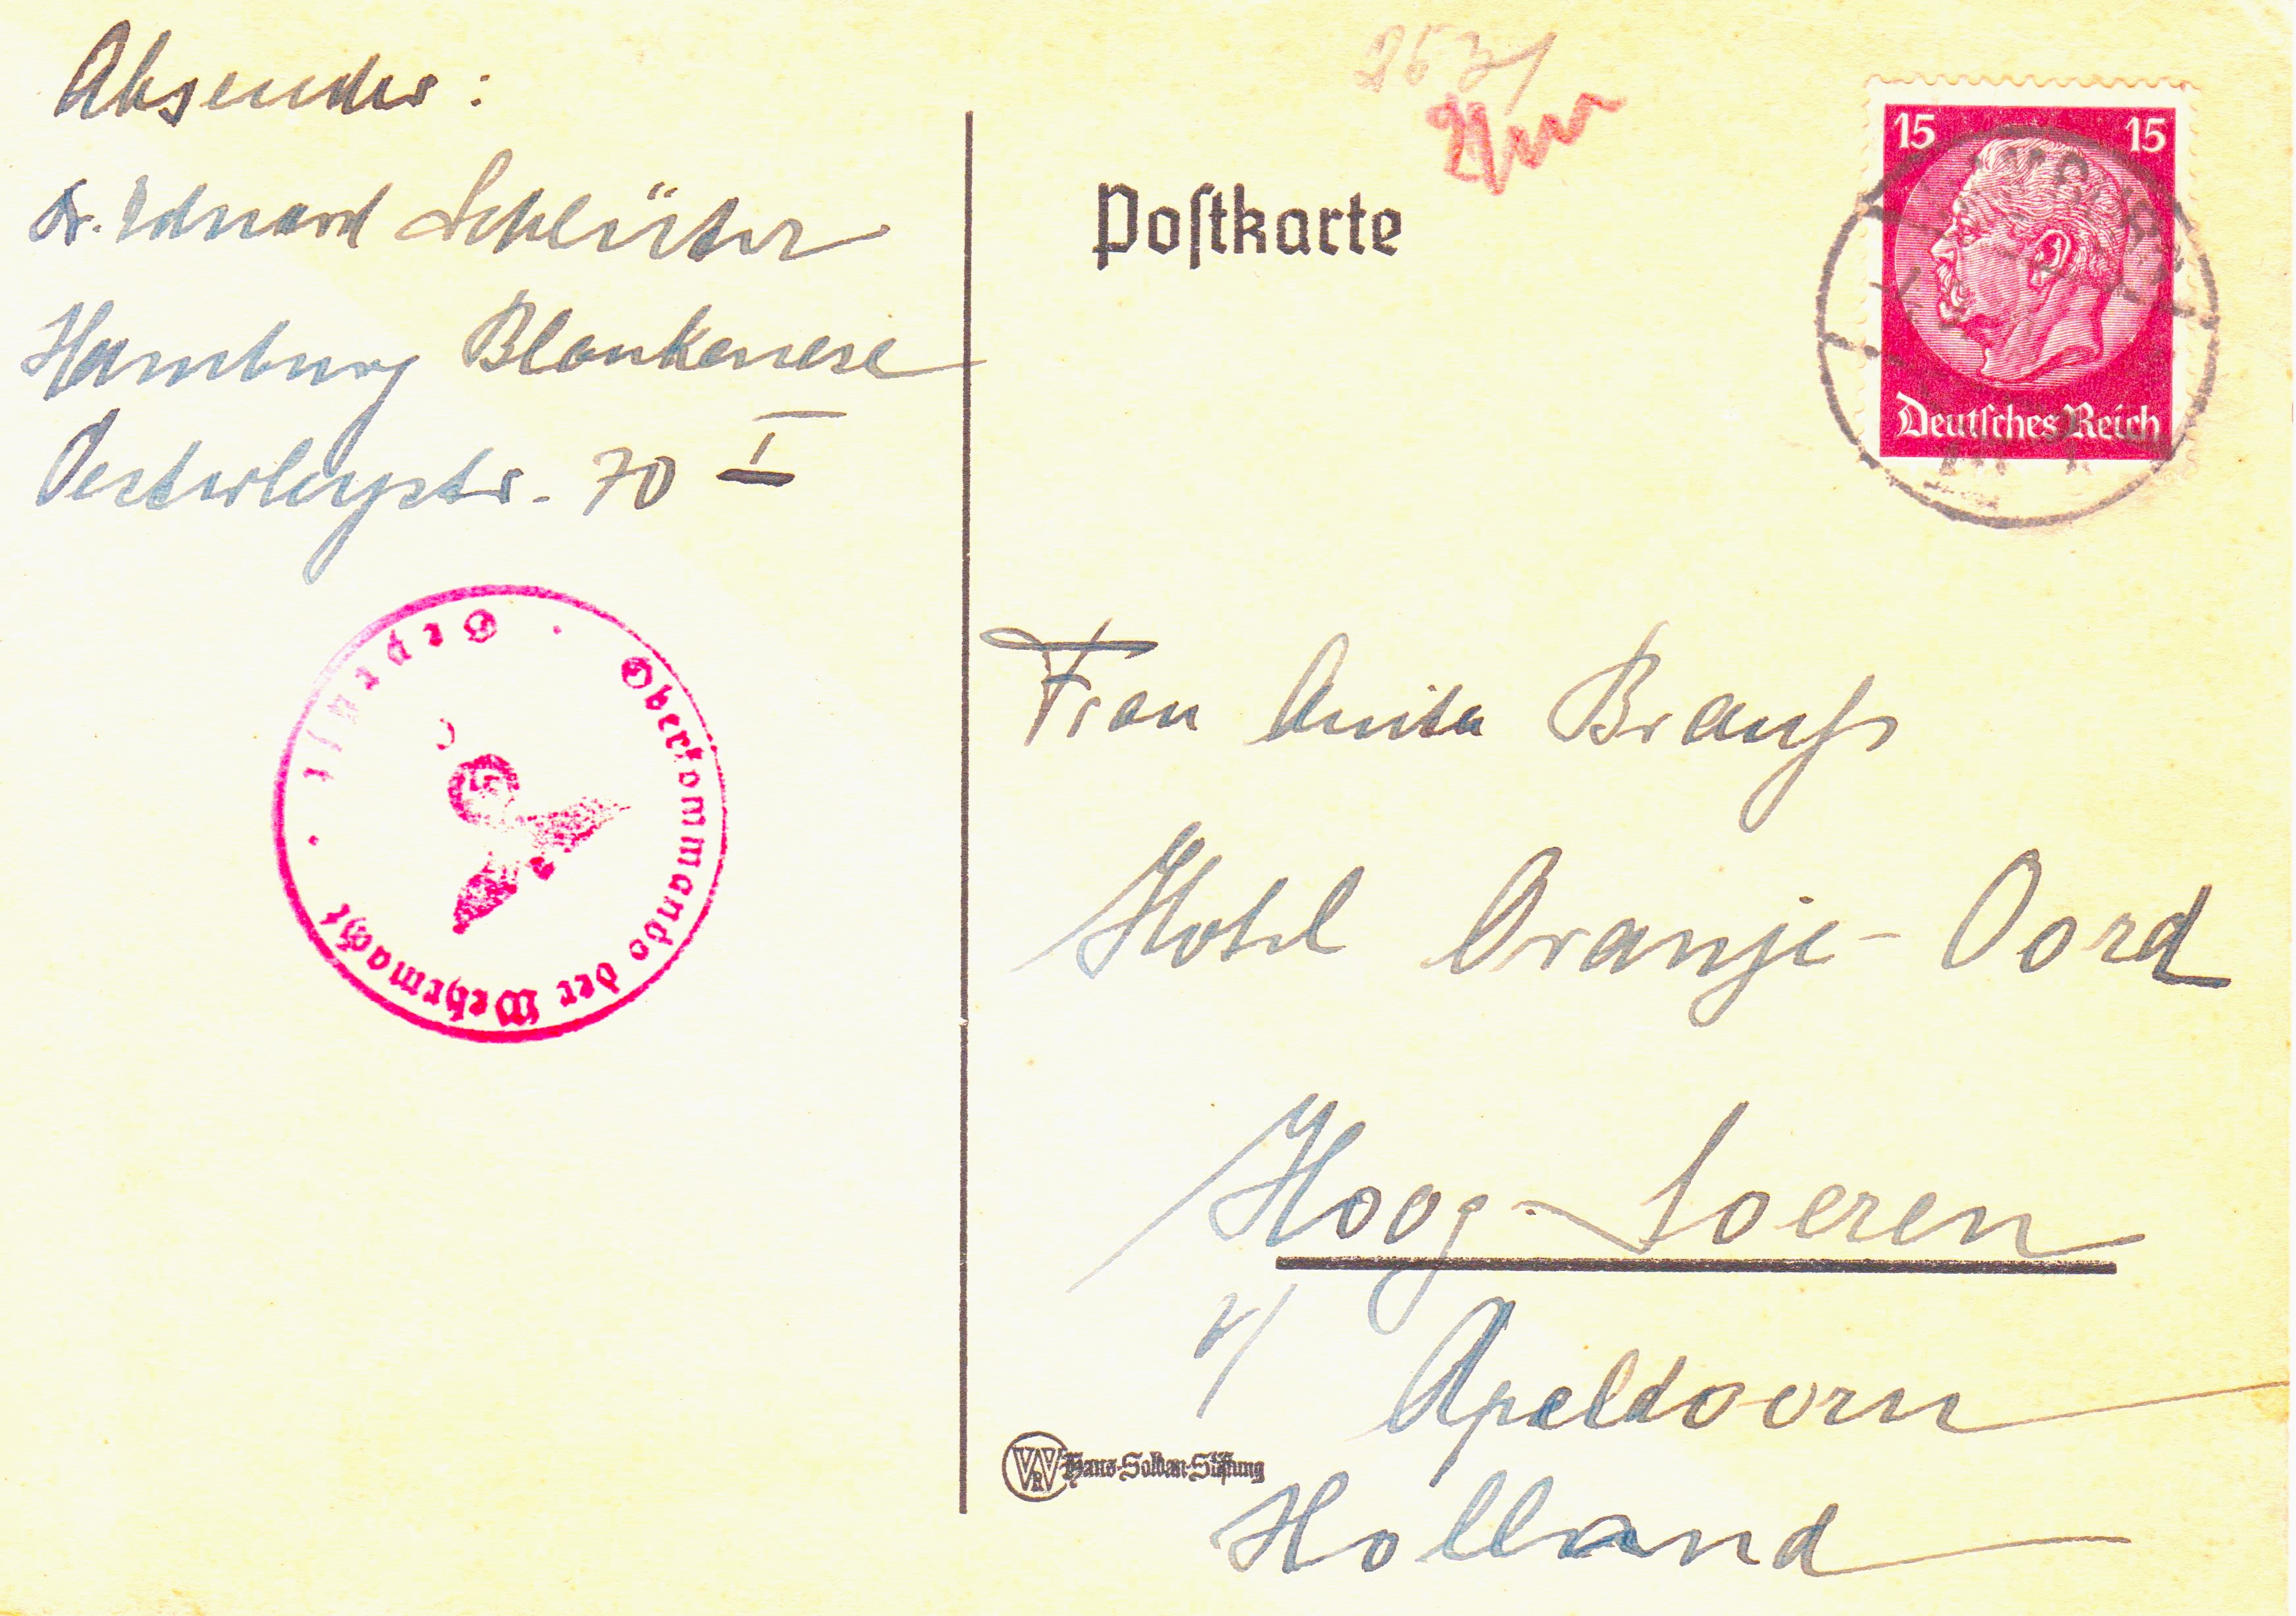 Absender:
Dr. Eduard Schlüter
Hamburg Blankenese
Oesterleystr. 70 I
Geprüft
Oberkommando der Wehrmacht
Poſtkarte
15 15
Deutſches Reich
Frau Anita Brauß
Hotel Oranje-Oord
Hoog-Soeren
b/ Apeldoorn
Holland
WR Hans-Soldan-Stiftung